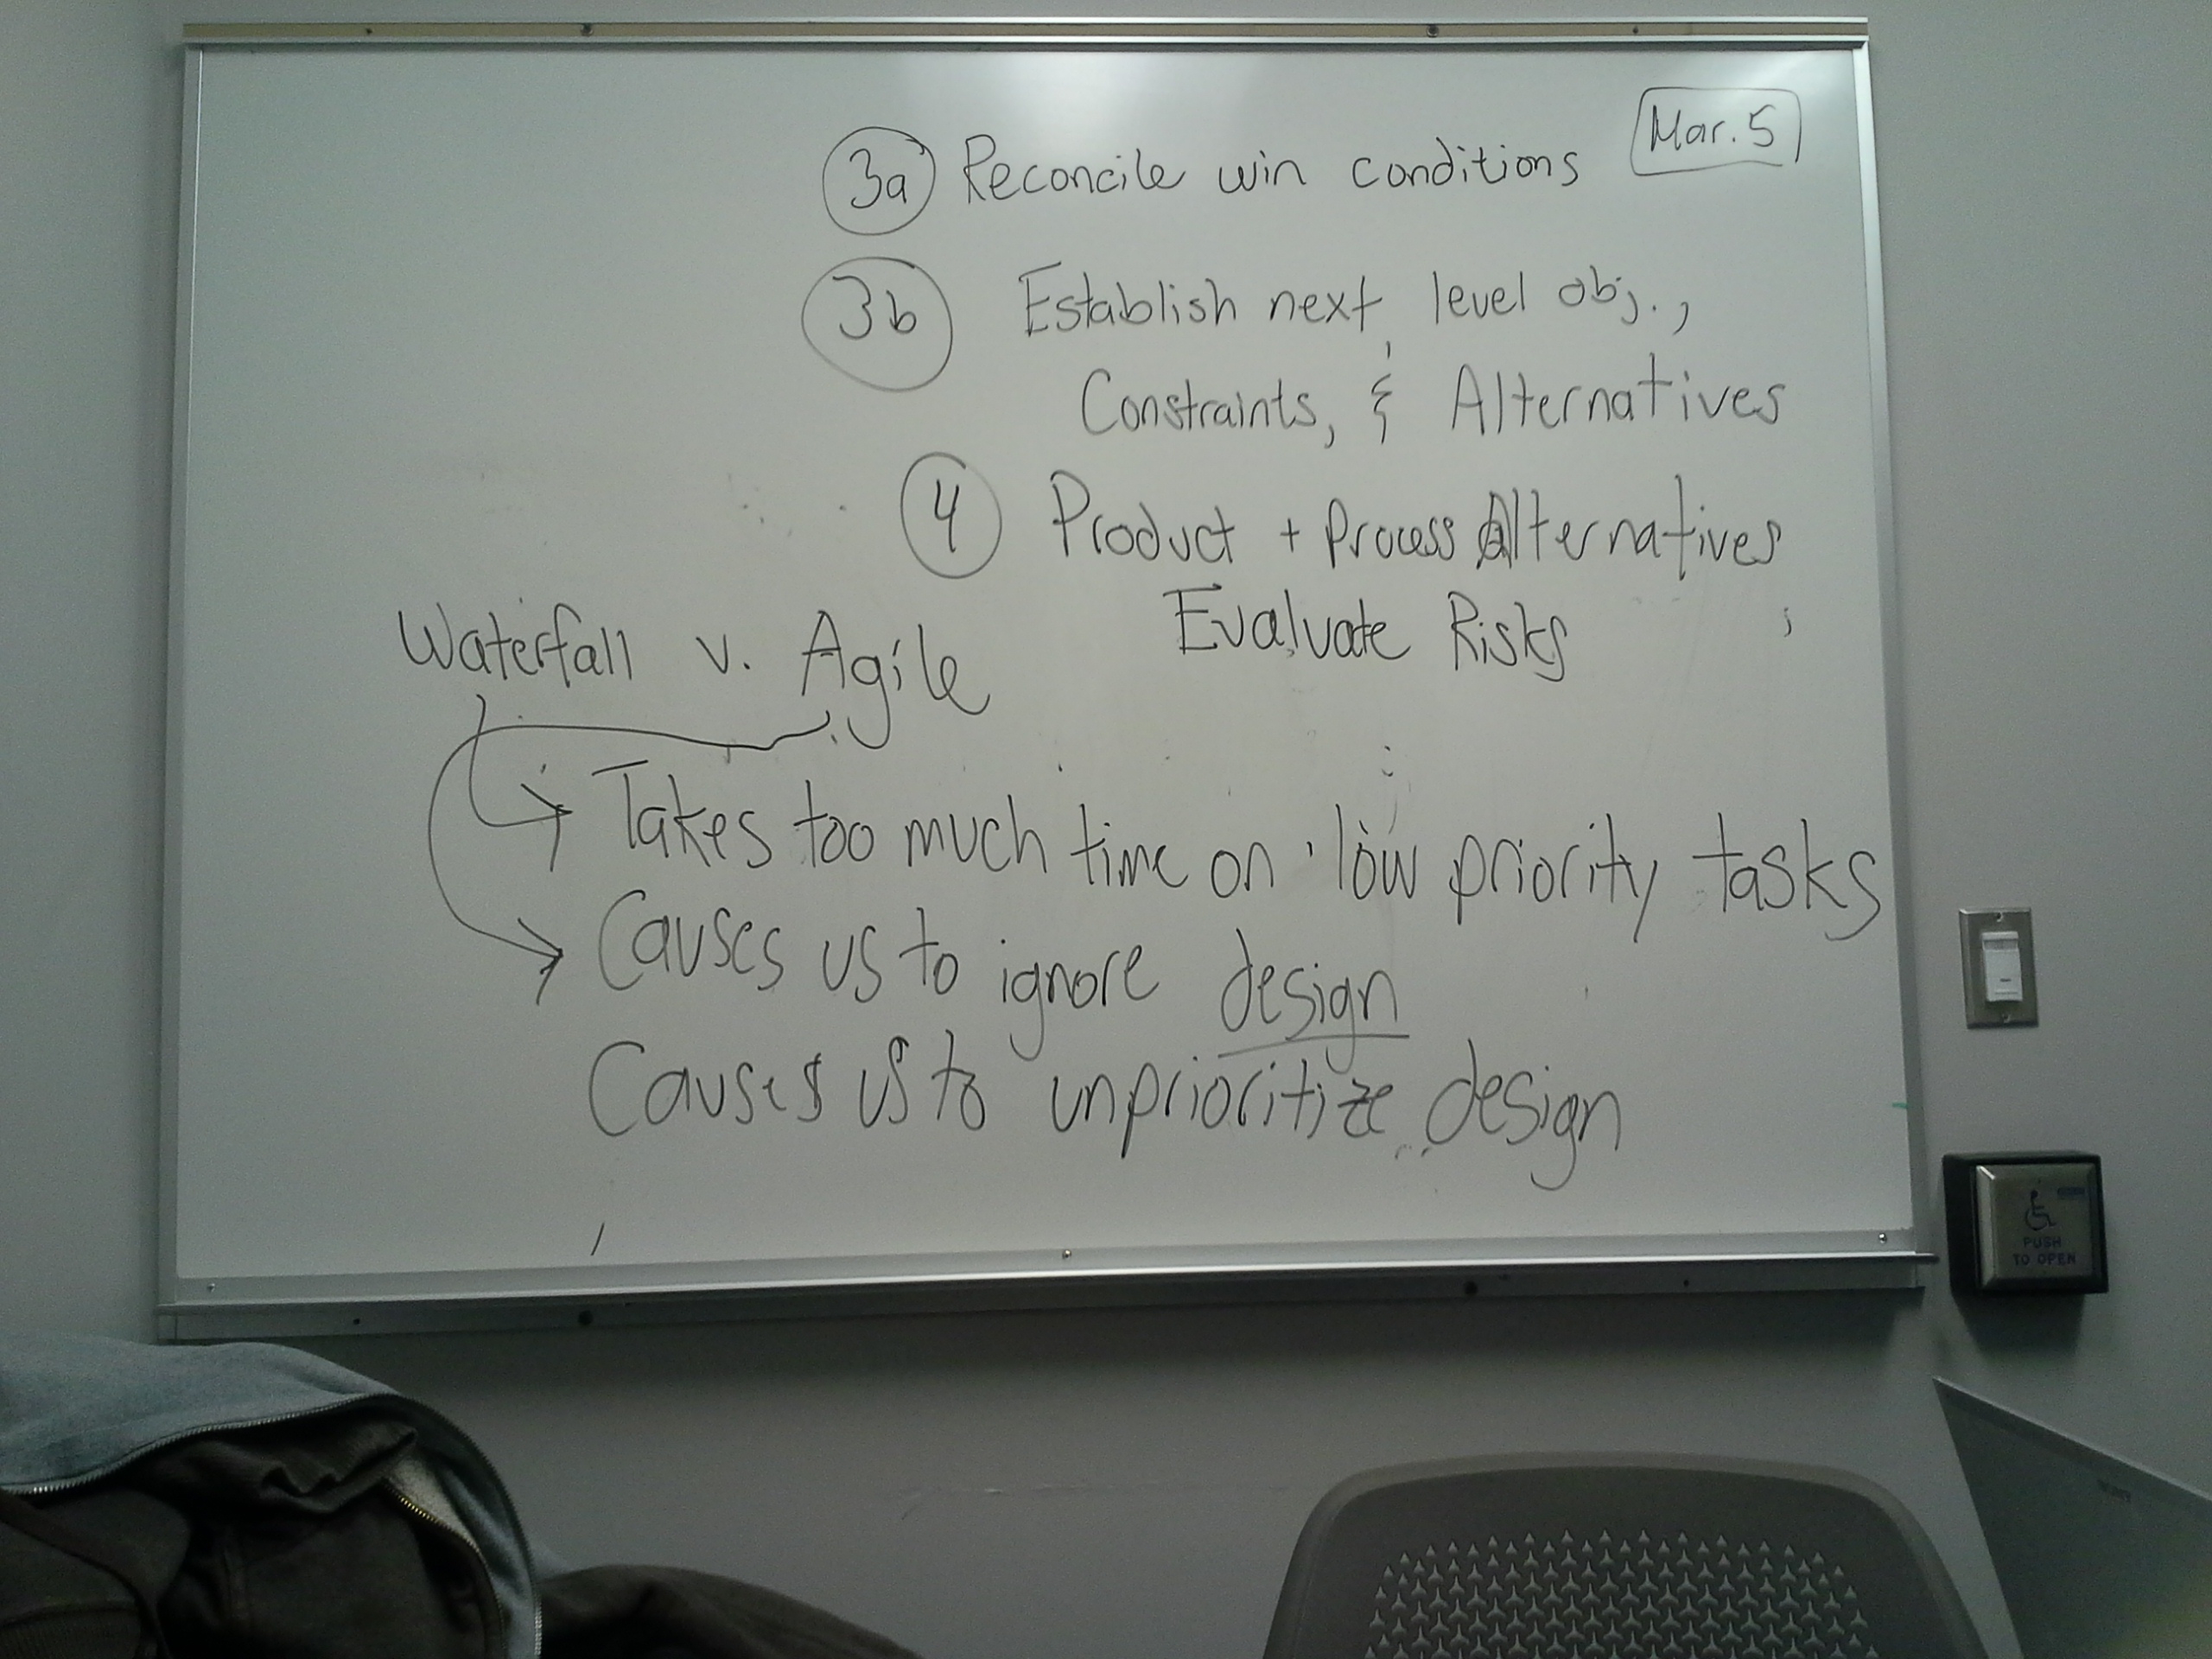 Mar. 5
3a Reconcile win conditions
3b Establish next level obj.,
Constraints, & Alternatives
4 Product + Process Alternatives
Evaluate Risks
Waterfall v. Agile
Takes too much time on low priority tasks
Causes us to ignore design
Causes us to unprioritize design
PUSH
TO OPEN